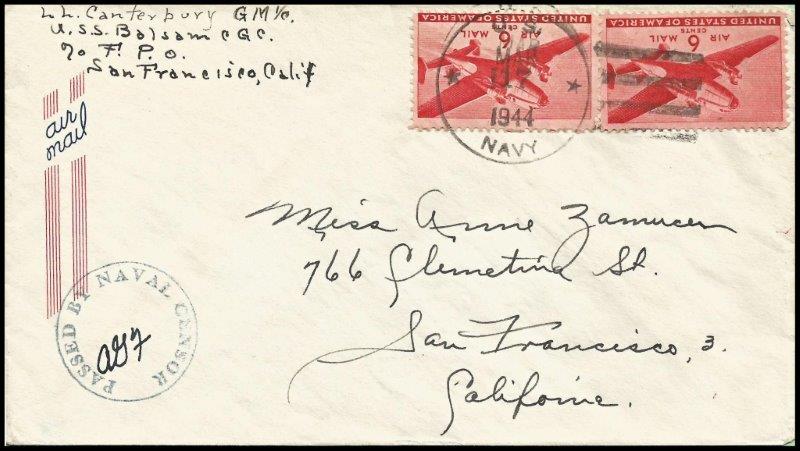 L.L. Canterbury GM 1/c.
U.S.S. Balsam CGC.
c/o F. P. O.
San Francisco, Calif
air
mail
UNITED STATES OF AMERICA
6 CENTS
AIR MAIL
UNITED STATES OF AMERICA
6 CENTS
AIR MAIL
MAR
1944
NAVY
Miss Anne Zamucen
766 Clementina St.
San Francisco, 3.
Califoine.
PASSED BY NAVAL CENSOR